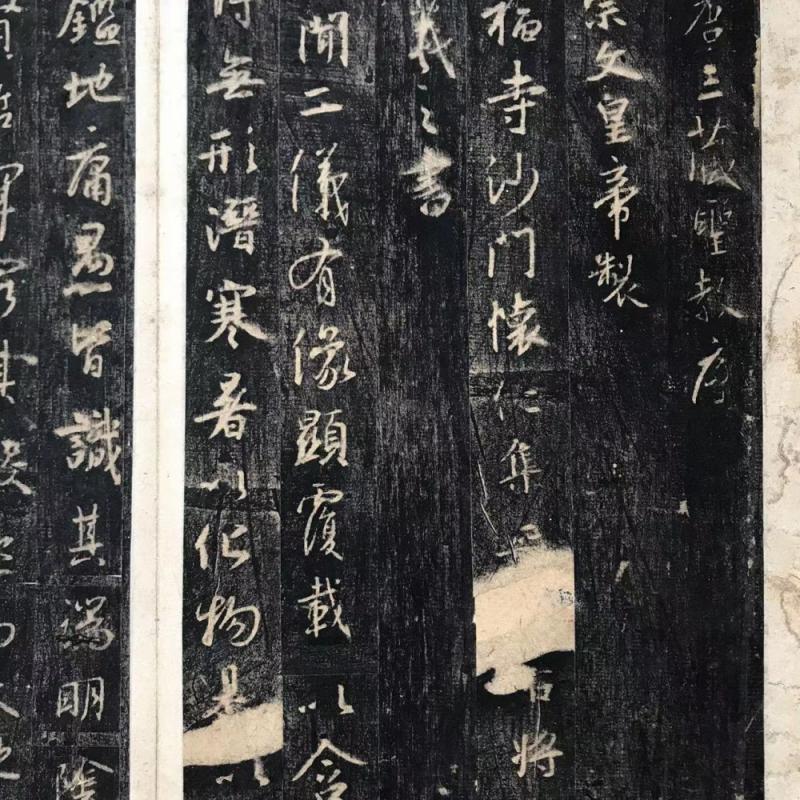 唐三藏聖教序
宗文皇帝製
福寺沙門懷仁集
右將
羲之書
聞二儀有像顯覆載以含
時無形潛寒暑以化物是以
鑑地庸愚皆識其端明陰
賢哲罕窮其數